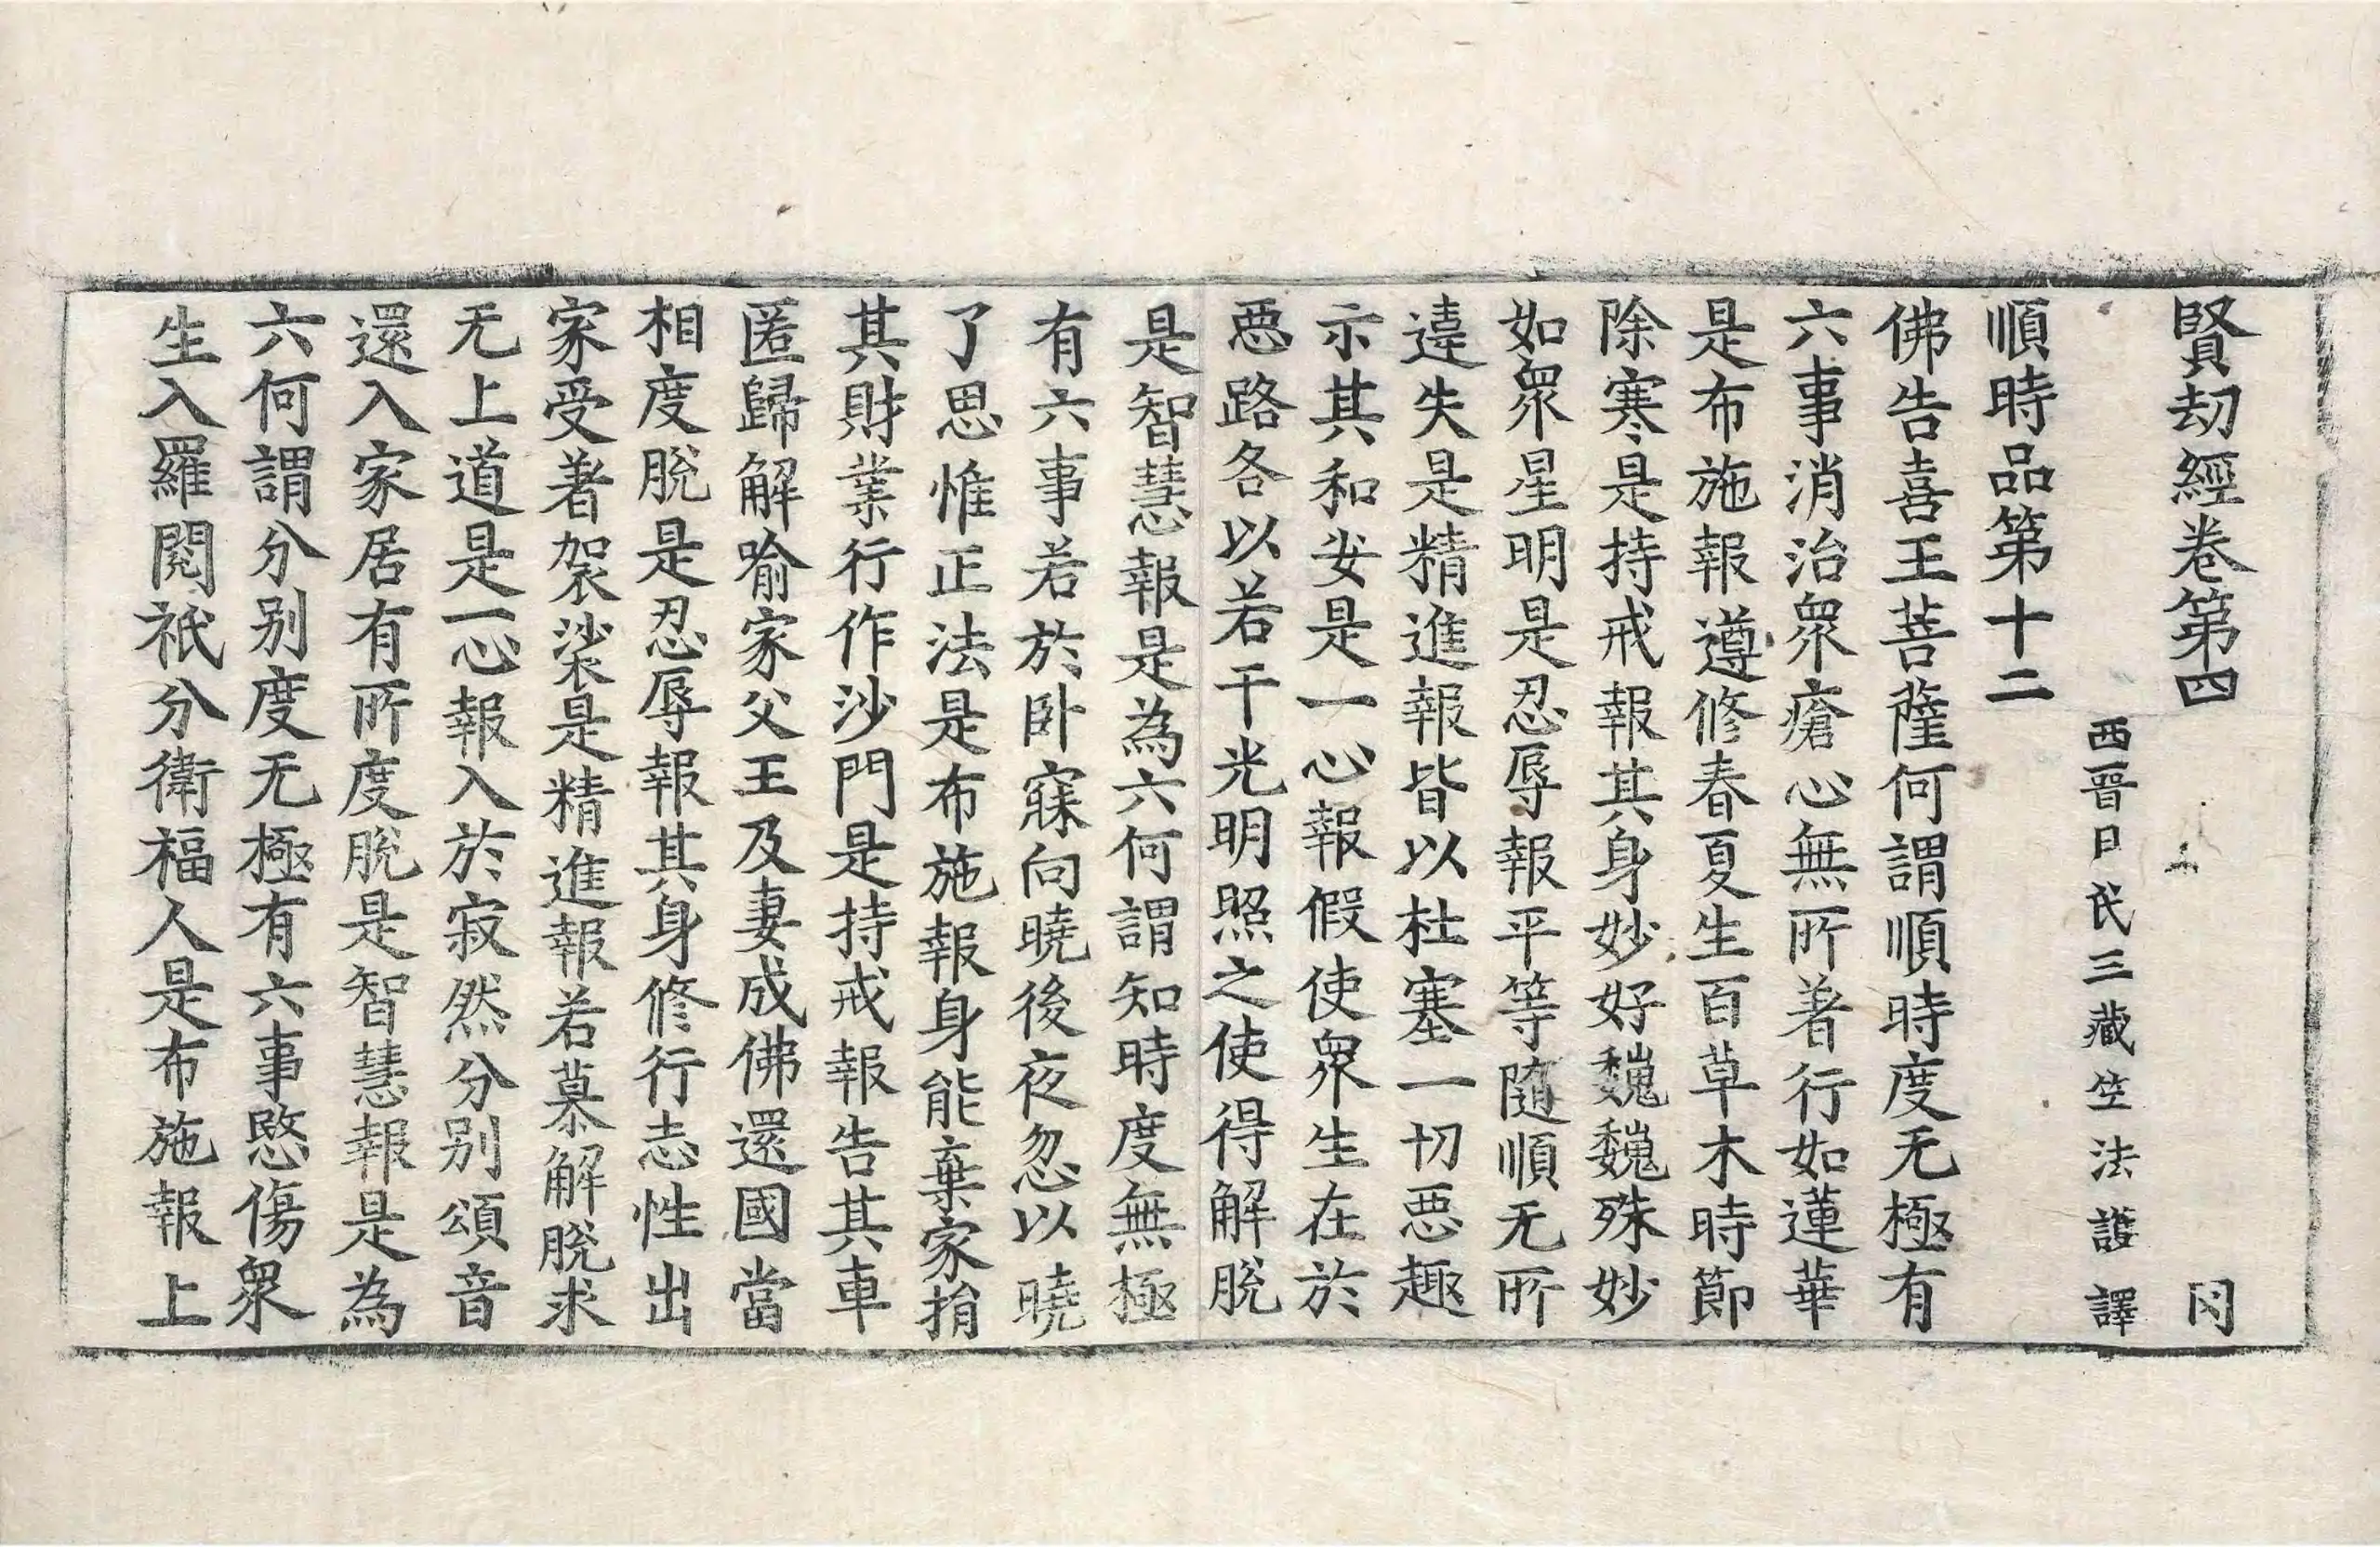 賢劫經卷第四 罔
西晉日氏三藏竺法護譯
順時品第十二
佛告喜王菩薩何謂順時度无極有
六事消治衆瘡心無所著行如蓮華
是布施報遵修春夏生百草木時節
除寒是持戒報其身妙好巍巍殊妙
如衆星明是忍辱報平等隨順无所
違失是精進報皆以杜塞一切惡趣
示其和安是一心報假使衆生在於
惡路各以若干光明照之使得解脫
是智慧報是為六何謂知時度無極
有六事若於卧寐向曉後夜忽以曉
了思惟正法是布施報身能棄家捐
其財業行作沙門是持戒報告其車
匿歸解喻家父王及妻成佛還國當
相度脫是忍辱報其身修行志性出
家受著袈裟是精進報若慕解脫求
无上道是一心報入於寂然分别頌音
還入家居有所度脫是智慧報是為
六何謂分别度无極有六事愍傷衆
生入羅閱祇分衛福人是布施報上